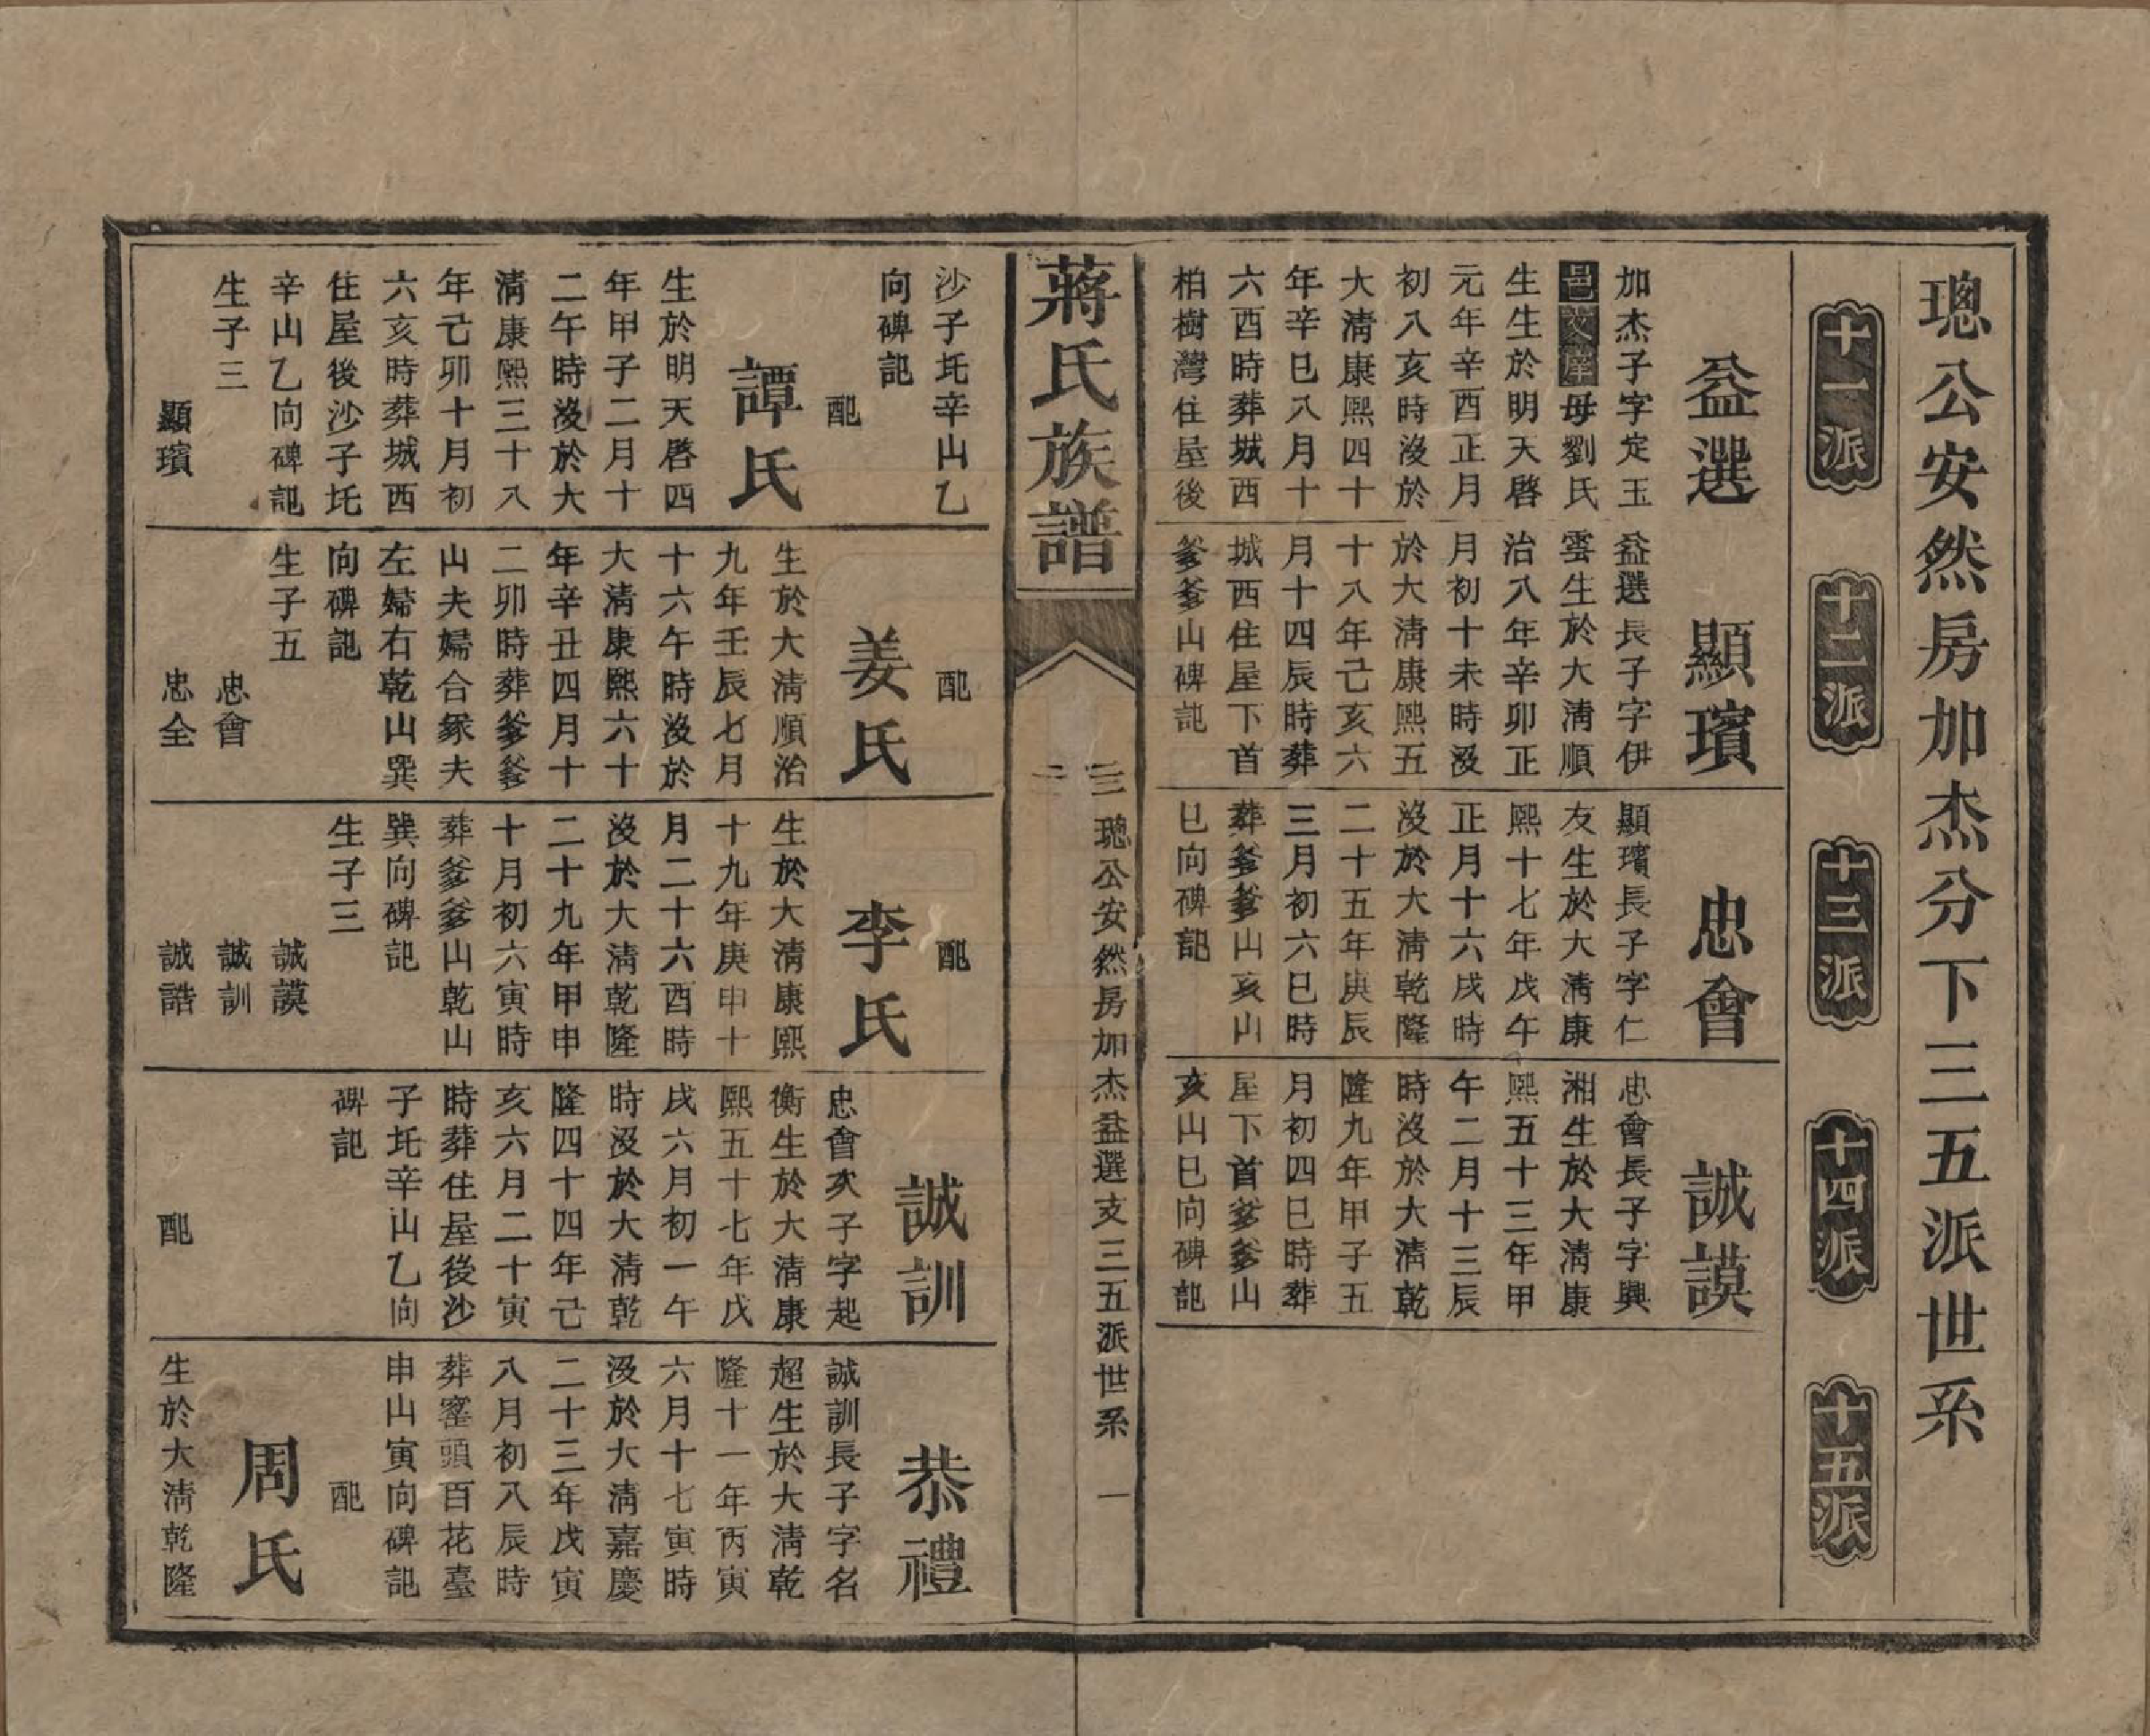 璁公安然房加杰分下三五派世系
十一派
十二派
十三派
十四派
十五派
益選
加杰子字定玉
邑文庠母劉氏
生生於明天啓
元年辛酉正月
初八亥時沒於
大清康熙四十
年辛巳八月十
六酉時葬城西
柏樹灣住屋後
顯璸
益選長子字伊
雲生於大清順
治八年辛卯正
月初十未時沒
於大清康熙五
十八年己亥六
月十四辰時葬
城西住屋下首
爹爹山碑記
忠會
顯璸長子字仁
友生於大清康
熙十七年戊午
正月十六戌時
沒於大清乾隆
二十五年庚辰
三月初六巳時
葬爹爹山亥山
巳向碑記
誠謨
忠會長子字興
湘生於大清康
熙五十三年甲
午二月十三辰
時沒於大清乾
隆九年甲子五
月初四巳時葬
屋下首爹爹山
亥山巳向碑記
蔣氏族譜
三二
璁公安然房加杰益選支三五派世系
一
沙子坵辛山乙
向碑記
配
譚氏
生於明天啓四
年甲子二月十
二午時沒於大
清康熙三十八
年己卯十月初
六亥時葬城西
住屋後沙子坵
辛山乙向碑記
生子三
顯璸
配
姜氏
生於大清順治
九年壬辰七月
十六午時沒於
大清康熙六十
年辛丑四月十
二卯時葬爹爹
山夫婦合冢夫
左婦右乾山巽
向碑記
生子五
忠會
忠全
配
李氏
生於大清康熙
十九年庚申十
月二十六酉時
沒於大清乾隆
二十九年甲申
十月初六寅時
葬爹爹山乾山
巽向碑記
生子三
誠謨
誠訓
誠誥
誠訓
忠會次子字起
衡生於大清康
熙五十七年戊
戌六月初一午
時沒於大清乾
隆四十四年己
亥六月二十寅
時葬住屋後沙
子坵辛山乙向
碑記
配
恭禮
誠訓長子字名
超生於大清乾
隆十一年丙寅
六月十七寅時
沒於大清嘉慶
二十三年戊寅
八月初八辰時
葬窰頭百花臺
申山寅向碑記
配
周氏
生於大清乾隆